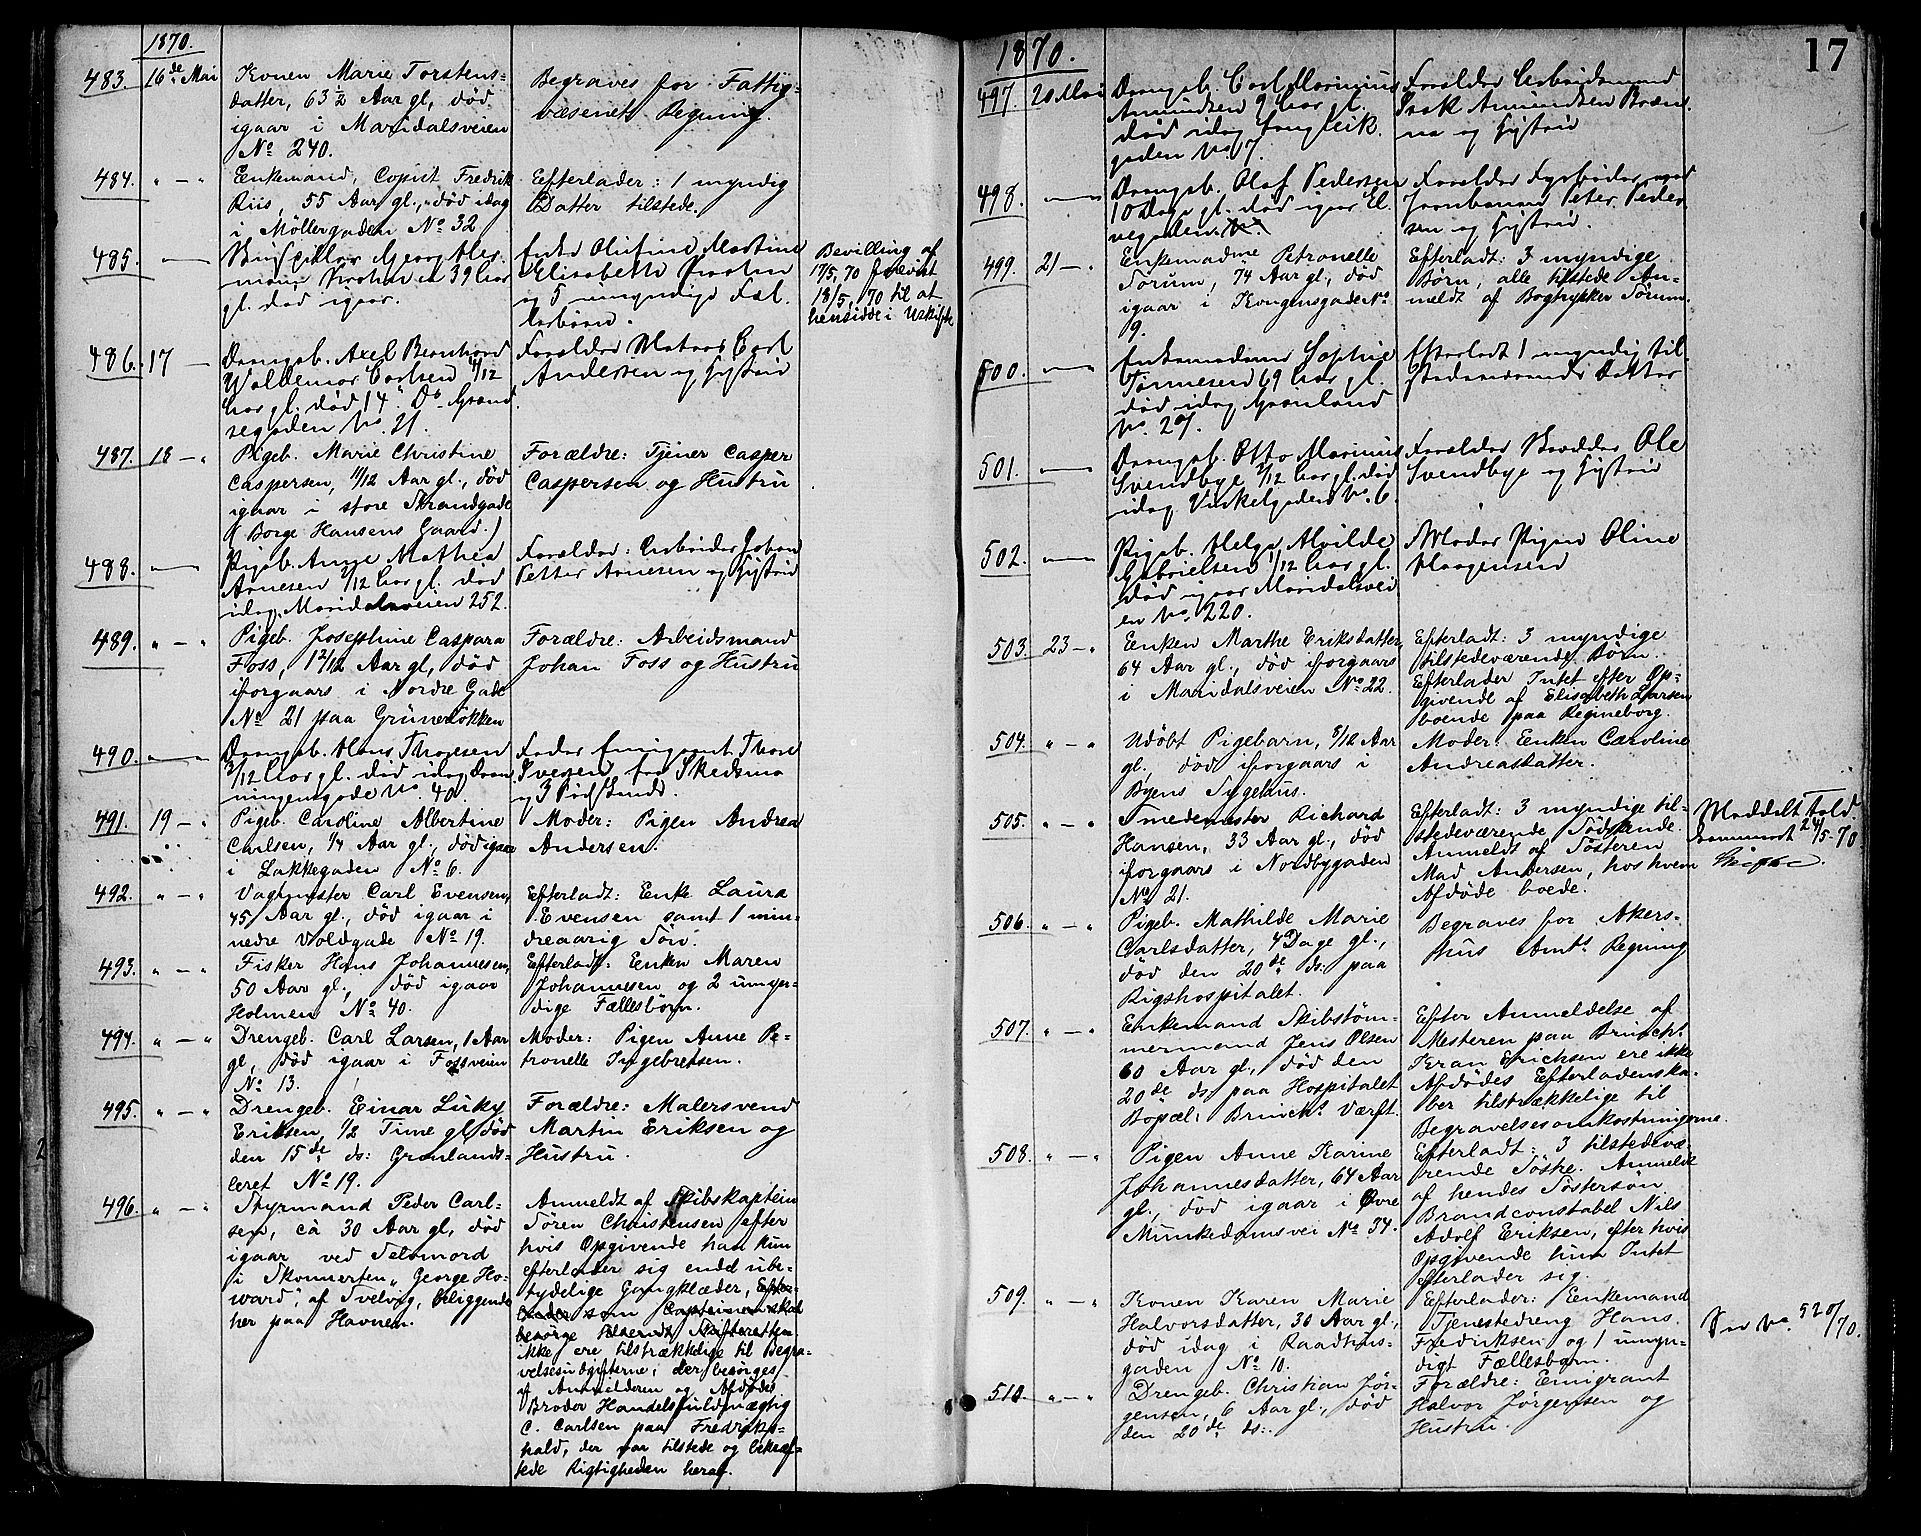 1870.
483. 16de Mai Konen Marie Torstens-
datter, 63 1/2 Aar gl, død
igaar i Maridalsveien
No 240.
Begraves for Fattig-
væsenets Regning.
484. " — " Enkemand, Copist Fredrik
Riis, 55 Aar gl., død idag
i Möllergaden No 32
Efterlader: 1 myndig
Datter tilstede.
485. — Georg
39 Aar
gl. død igaar.
Enke Olufine Martine
Elisabeth
og 5 umyndige Fæl-
lesbørn.
Bevilling af
17/5, 70 forevist
18/5, 70 til at
hensidde i Uskifte
486. 17 — Drengeb. Axel Bernhard
Waldemar Carlsen 11/12
Aar gl. død 14de Ds. Grønd-
segaden No. 21.
Forældre Matros Carl
Andersen og Hustru
487. 18 — " Pigeb. Marie Christine
Caspersen, 11/12 Aar gl., død
igaar i store Strandgade
(Borge Hansens Gaard.)
Forældre: Tjener Casper
Caspersen og Hustru
488. — Pigeb. Anne Mathea
Arnesen /12 Aar gl. død
idag Maridalsveien 252.
Forældre: Arbeider Johan
Petter Arnesen og Hustru
489. " — " Pigeb. Josephine Caspara
Foss, 1 2/12 Aar gl, død
iforgaars i Nordre Gade
No 21 paa Grünerløkken
Forældre: Arbeidsmand
Johan Foss og Hustru
490. — Drengeb. Hans Thoresen
3/12 Aar gl. død idag Dron-
ningensgade No. 40.
Fader Emigrant Thore
Iversen fra Skedsmo
og 3 Sødskende.
491. 19 — " Pigeb. Caroline Albertine
Carlsen, 1/4 Aar gl., død igaar
i Lakkegaden No 6.
Moder: Pigen Andrea
Andersen.
492. " — " Vagtmester Carl Evensen,
45 Aar gl., død igaar i
nedre Voldgade No 19.
Efterladt: Enke Laura
Evensen samt 1 min-
dreaarig Søn.
493. " — " Fisker Hans Johannesen,
50 Aar gl., død igaar
Holmen No 40.
Efterladt: Enken Maren
Johannesen og 2 umyn-
dige Fællesbörn.
494. " — " Drengeb. Carl Larsen, 1 Aar
gl, død igaar i Fossveien
No 13.
Moder: Pigen Anne Pe-
tronelle Ingebretsen.
495. " — " Drengeb. Einar Luky
Eriksen, 1/2 Time gl, død
den 15de ds: Grønlands-
leret No 19.
Forældre: Malersvend
Martin Eriksen og
Hustru.
496. " — " Styrmand Peder Carl-
sen, cà 30 Aar gl, død
igaar ved Selvmord
i Skonnerten „George Ho-
ward", af Svelvig, beliggende
her paa Havnen.
Anmeldt af Skibskaptein
Sören Christensen, efter
hvis Opgivende han kun
efterlader sig endel ube-
tydelige Gangklæder,
som Capteinen skal
besörge Skifteretten
ikke ere tilstrækkelige til Begra-
velsesudgifterne, der besörges
af Anmelderen og Afdödes
Broder Handelsfuldmægtig
C. Carlsen paa Fredriks-
hald, der var tilstede og bekræf-
tede Rigtigheden heraf.
1870.
17
497. 20 Mai Drengeb. Carl Marinius
Amundsen 9 Aar gl.
død idag Langleik-
gaden No. 7.
Forældre Arbeidsmand
Isak Amundsen
og Hustru
498. — Drengeb. Olaf Pedersen
10 Dage gl. død igaar El-
vegaden.
Forældre Fyrbøder ved
Jernbanen Peter Peder-
sen og Hustru.
499. 21 — " Enkemadme Petronelle
Sørum, 74 Aar gl., død
igaar i Kongensgade No
9.
Efterladt: 3 myndige
Børn, alle tilstede An-
meldt af Bogtrykker Sørum.
500. — Enkemadame Sophie
Tønnesen 69 Aar gl.
død idag Grønland
No. 27.
Efterladt 1 myndig til-
stedeværende Datter
501. — Drengeb. Otto Marinius
Svendbye 2/12 Aar gl. død
idag Vinkelgaden No. 6
Forældre Ole
Svendbye og Hustru
502. — Pigeb. Helga Alvilde
Gabrielsen 1/12 Aar gl.
død igaar Maridalsvei-
en No. 220.
Moder Pigen Oline
Haagensen
503. 23 — " Enken Marthe Eriksdatter,
64 Aar gl., død iforgaars
i Maridalsveien No 22.
Efterladt: 3 myndige
tilstedeværende Børn.
Efterlader Intet efter Op-
givende af Elisabeth Larsen
boende paa Regineborg.
504. " — " Udøbt Pigebarn, 8/12 Aar
gl, død iforgaars i
Byens Sygehus.
Moder: Enken Caroline
Andreasdatter.
505. " — " Smedemester Richard
Hansen, 33 Aar gl., død
iforgaars i Nordbygaden
No 21.
Efterladt: 3 myndige til-
stedeværende Södskende.
Anmeldt af Søsteren
Mad Andersen, hos hvem
Afdøde boede.
Meddelt Told-
kammeret 24/5-70
506. " — " Pigeb. Mathilde Marie
Carlsdatter, 4 Dage gl.,
död den 20de ds. paa
Rigshospitalet.
Begraves for Akers-
hus Amts Regning
507. " — " Enkemand Skibstøm-
mermand Jens Olsen
60 Aar gl., død den
20de ds paa Hospitalet
Bopæl: Brinchs Værft.
Efter Anmeldelse af
Mesteren paa Brinchs
Kran Erichsen ere ikke
Afdødes Efterladenska-
ber tilstrækkelige til
Begravelsesomkostningerne.
508. " — " Pigen Anne Karine
Johannesdatter, 64 Aar
gl., død igaar i Øvre
Munkedamsvei No 34.
Efterladt: 3 tilstedevæ-
rende Söstre. Anmeldt
af hendes Søstersøn
Brandconstabel Nils
Adolf Eriksen, efter hvis
Opgivende hun Intet
efterlader sig.
509. " — " Konen Karen Marie
Halvorsdatter, 30 Aar gl,
død idag i Raadhus-
gaden No 10.
Efterlader: Enkemand
Tjenestedreng Hans
Fredriksen og 1 umyn-
digt Fællesbarn.
Se No. 520/70.
510. " — " Drengeb. Christian Jör-
gensen, 6 Aar gl., død
den 20de ds:.
Forældre: Emigrant
Halvor Jørgensen og
Hustru.